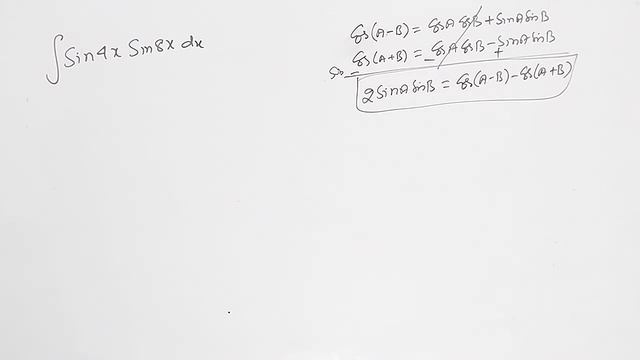 ∫Sin4x Sin8x dx
Cos(A-B) = CosA CosB + SinA SinB
Cos(A+B) = CosA CosB - SinA SinB
2SinA SinB = Cos(A-B) - Cos(A+B)